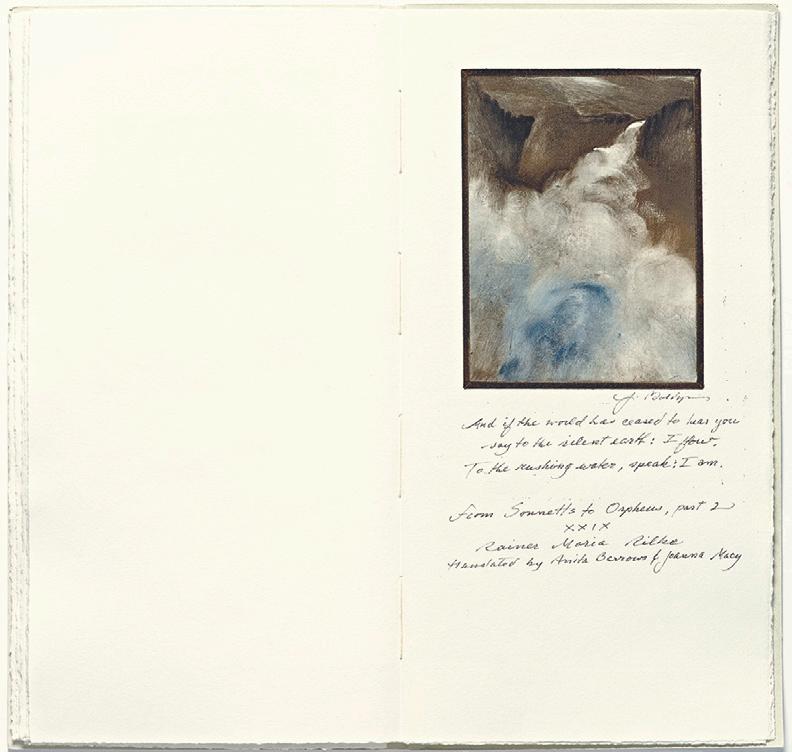 J.
And if the world has ceased to hear you
say to the silent earth: I flow.
To the rushing water, speak: I am.
From Sonnetts to Orpheus, part 2
XXIX
Rainer Maria Rilke
translated by Anita Barrows & Joanna Macy